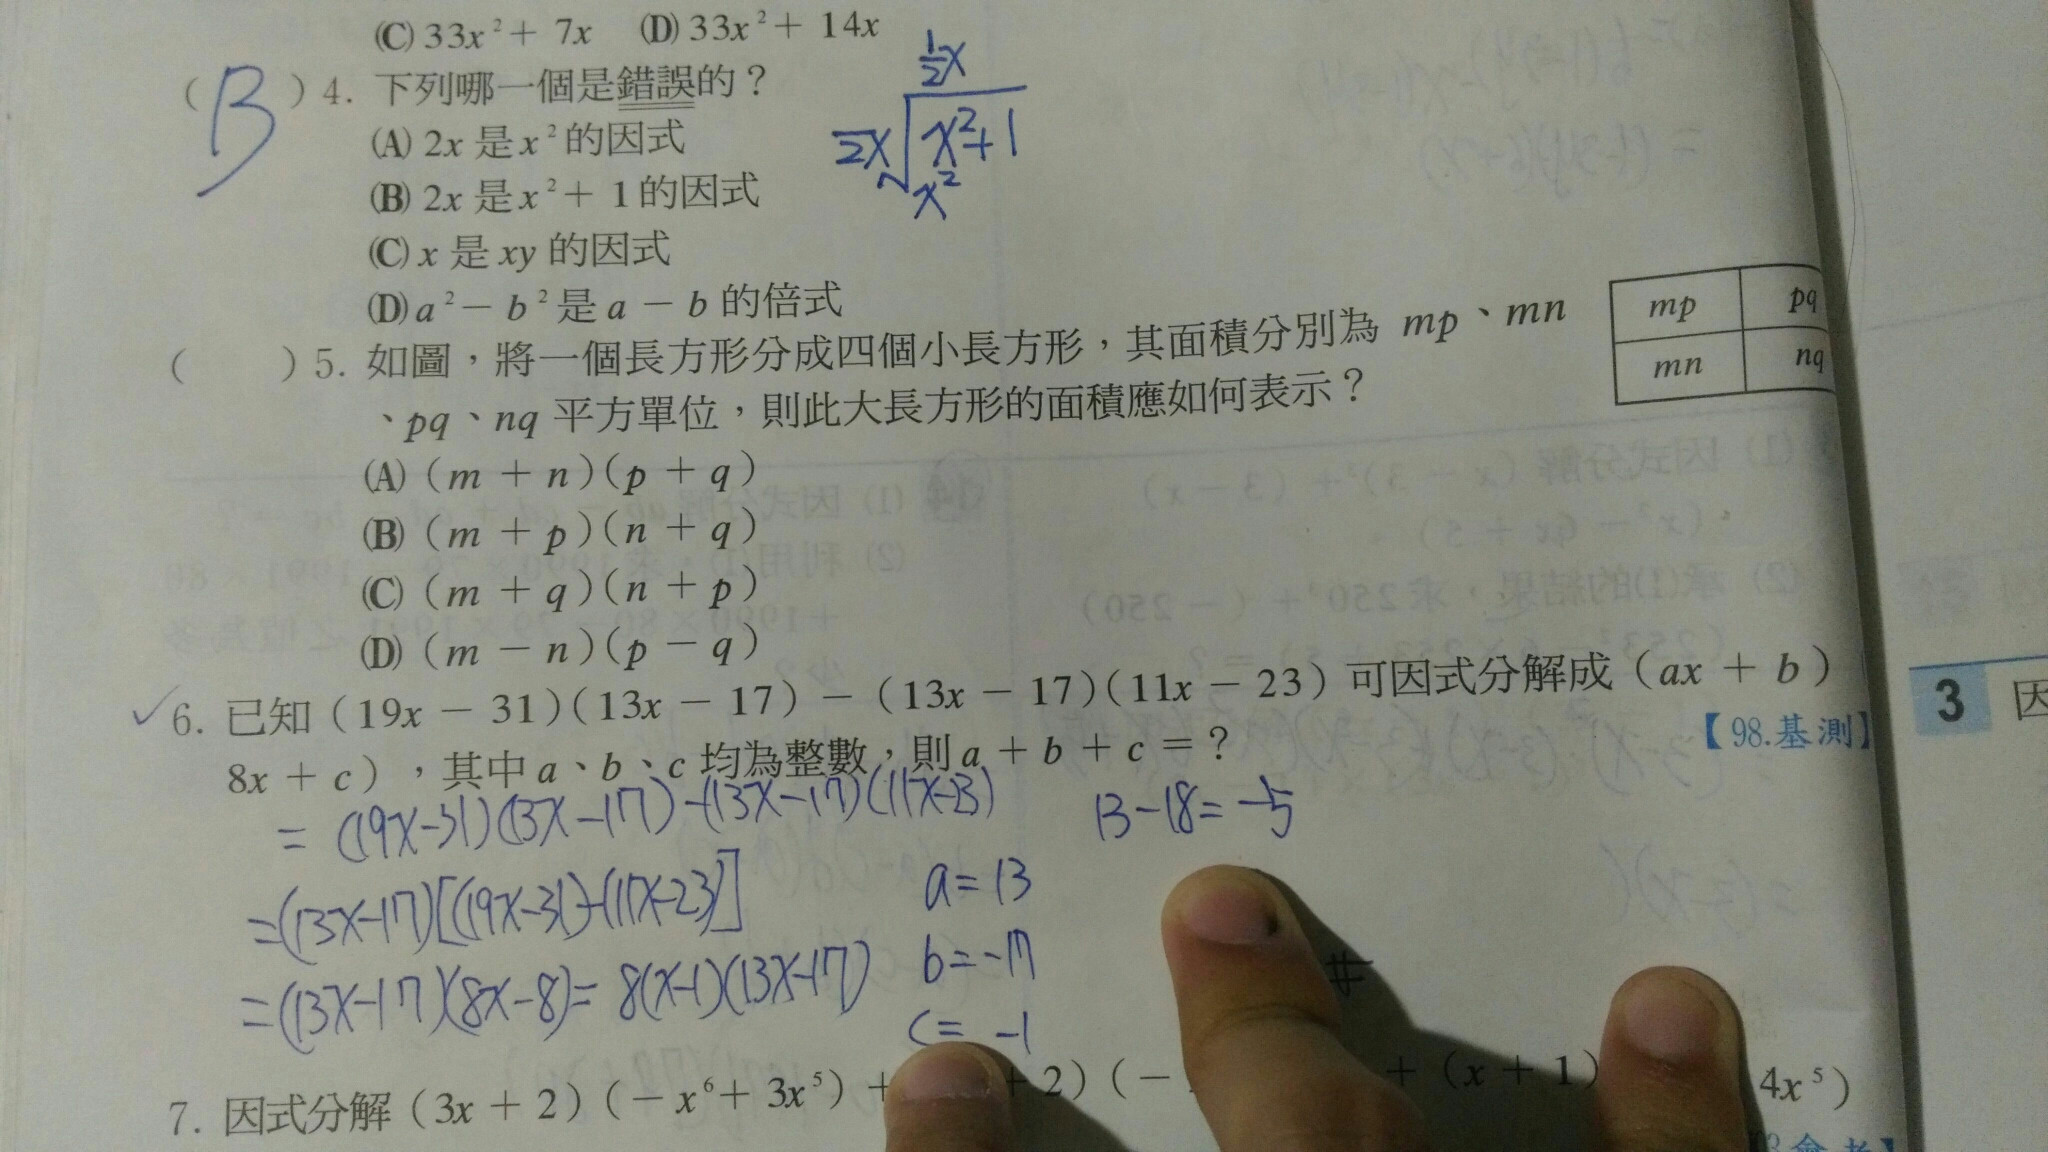 (C) 33x²+ 7x (D) 33x²+ 14x
½x
( B ) 4. 下列哪一個是錯誤的？
2x x²+1
x²
(A) 2x 是 x² 的因式
(B) 2x 是 x²+ 1 的因式
(C) x 是 xy 的因式
(D) a²− b² 是 a − b 的倍式
( ) 5. 如圖，將一個長方形分成四個小長方形，其面積分別為 mp、mn
、pq、nq 平方單位，則此大長方形的面積應如何表示？
mp pq
mn nq
(A) (m + n)(p + q)
(B) (m + p)(n + q)
(C) (m + q)(n + p)
(D) (m − n)(p − q)
✓6. 已知(19x − 31)(13x − 17) − (13x − 17)(11x − 23) 可因式分解成(ax + b)
8x + c)，其中 a、b、c 均為整數，則 a + b + c = ？
【98.基測】
3 因
= (19x-31)(13x-17)-(13x-17)(11x-23)
13-18=-5
=(13x-17)[(19x-31)-(11x-23)]
a=13
=(13x-17)(8x-8)= 8(x-1)(13x-17)
b=-17
c= -1
#
7. 因式分解(3x + 2)(− x⁶+ 3x⁵) + + 2)(− + (x + 1) 4x⁵)
會考】